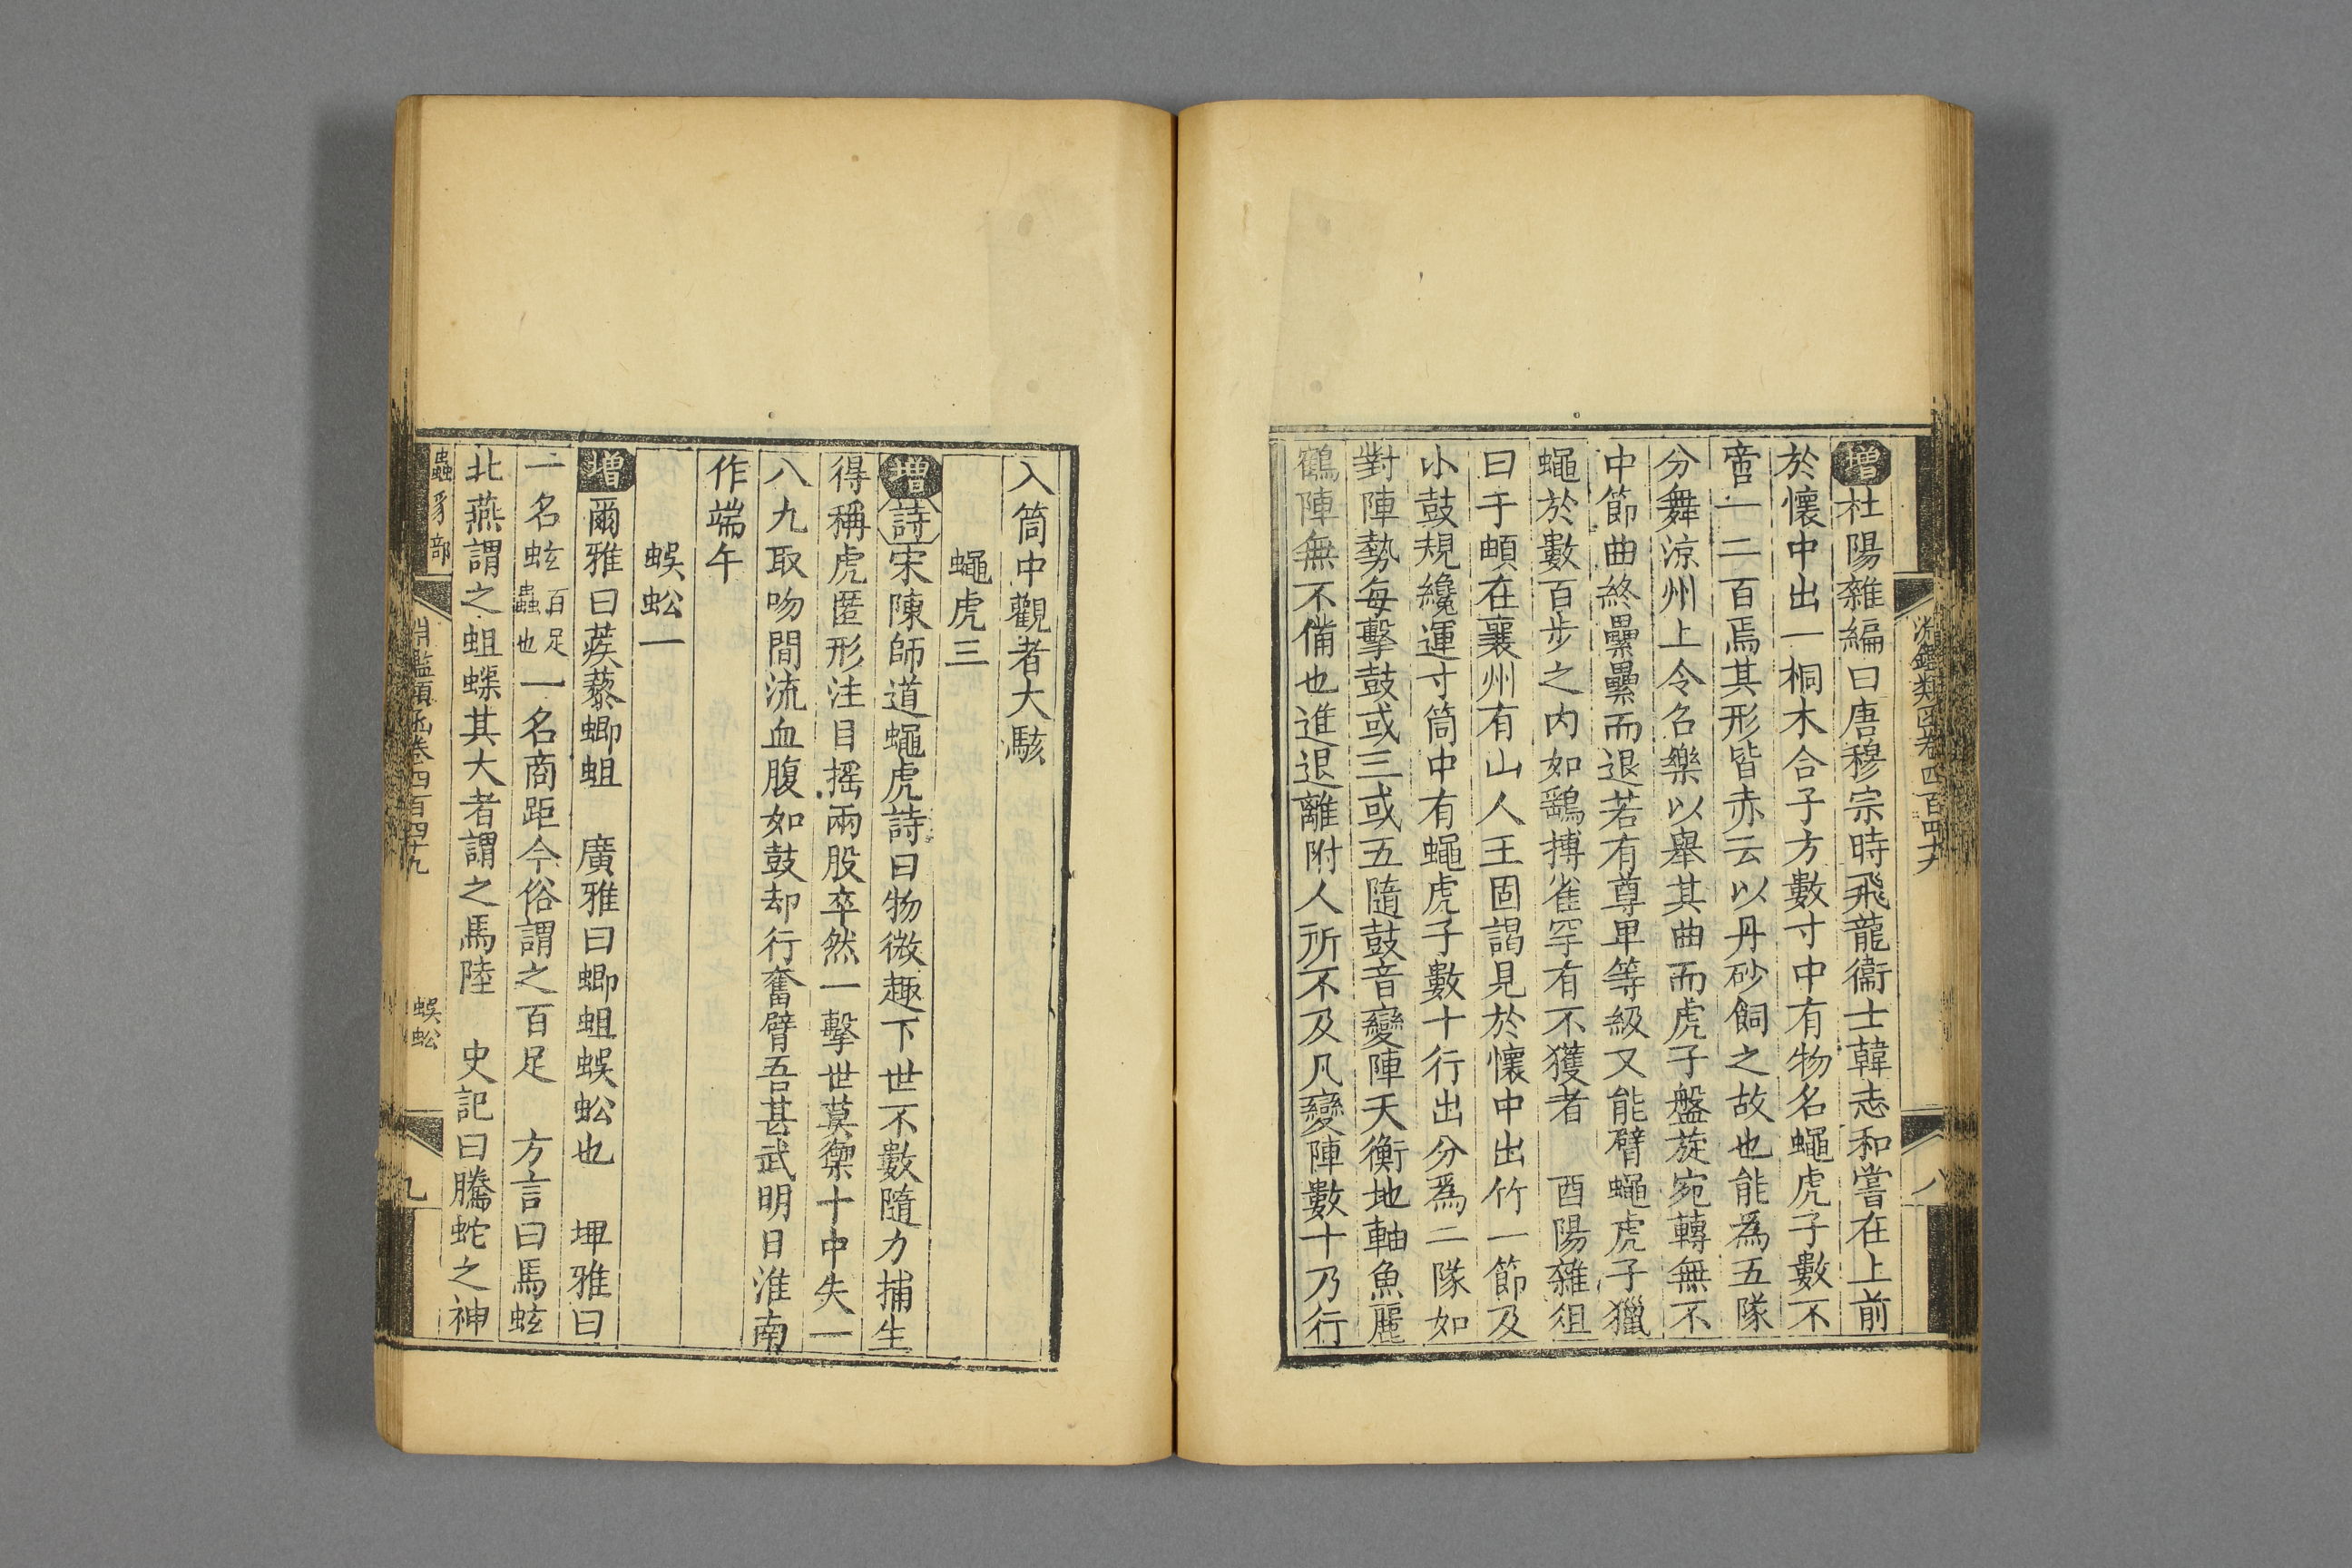 增杜陽雜編曰唐穆宗時飛龍衞士韓志和嘗在上前
於懷中出一桐木合子方數寸中有物名蠅虎子數不
啻一二百焉其形皆赤云以丹砂飼之故也能爲五隊
分舞涼州上令名樂以舉其曲而虎子盤旋宛轉無不
中節曲終纍纍而退若有尊卑等級又能臂蠅虎子獵
蠅於數百步之内如鷂搏雀罕有不獲者 酉陽雜俎
曰于頔在襄州有山人王固謁見於懷中出竹一節及
小鼓規纔運寸筒中有蠅虎子數十行出分爲二隊如
對陣勢每擊鼓或三或五隨鼓音變陣天衡地軸魚麗
鶴陣無不備也進退離附人所不及凡變陣數十乃行
入筒中觀者大駭
蠅虎三
增詩宋陳師道蠅虎詩曰物微趣下世不數隨力捕生
得稱虎匿形注目搖兩股卒然一擊世莫禦十中失一
八九取吻間流血腹如鼓却行奮臂吾甚武明日淮南
作端午
蜈蚣一
增爾雅曰蒺藜蝍蛆 廣雅曰蝍蛆蜈蚣也 埤雅曰
一名蚿百足蟲也一名商距今俗謂之百足 方言曰馬蚿
北燕謂之蛆蟝其大者謂之馬陸 史記曰騰蛇之神
蟲豸部
淵鑑類函卷四百四十九
蜈蚣
九